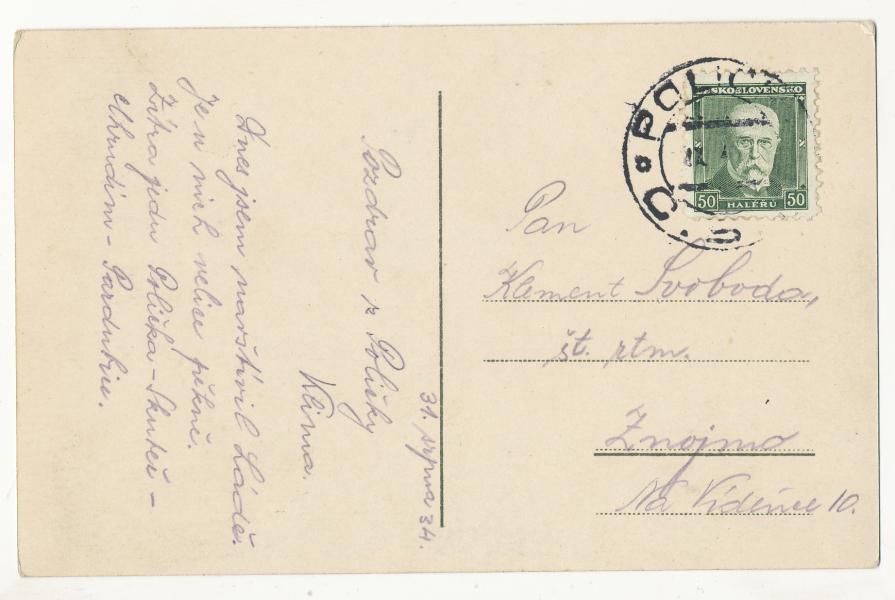 31. srpna 34.
Pozdrav z Poličky
Klima.
Dnes jsem navštívil Ládě.
Je u nich velice pěkně.
Zítra jedu Polička - Skuteč -
Chrudim - Pardubice.
ČESKOSLOVENSKO
50 HALÉŘŮ 50
Pan
Klement Svoboda,
št. rtm.
Znojmo
Na Vídeňce 10.